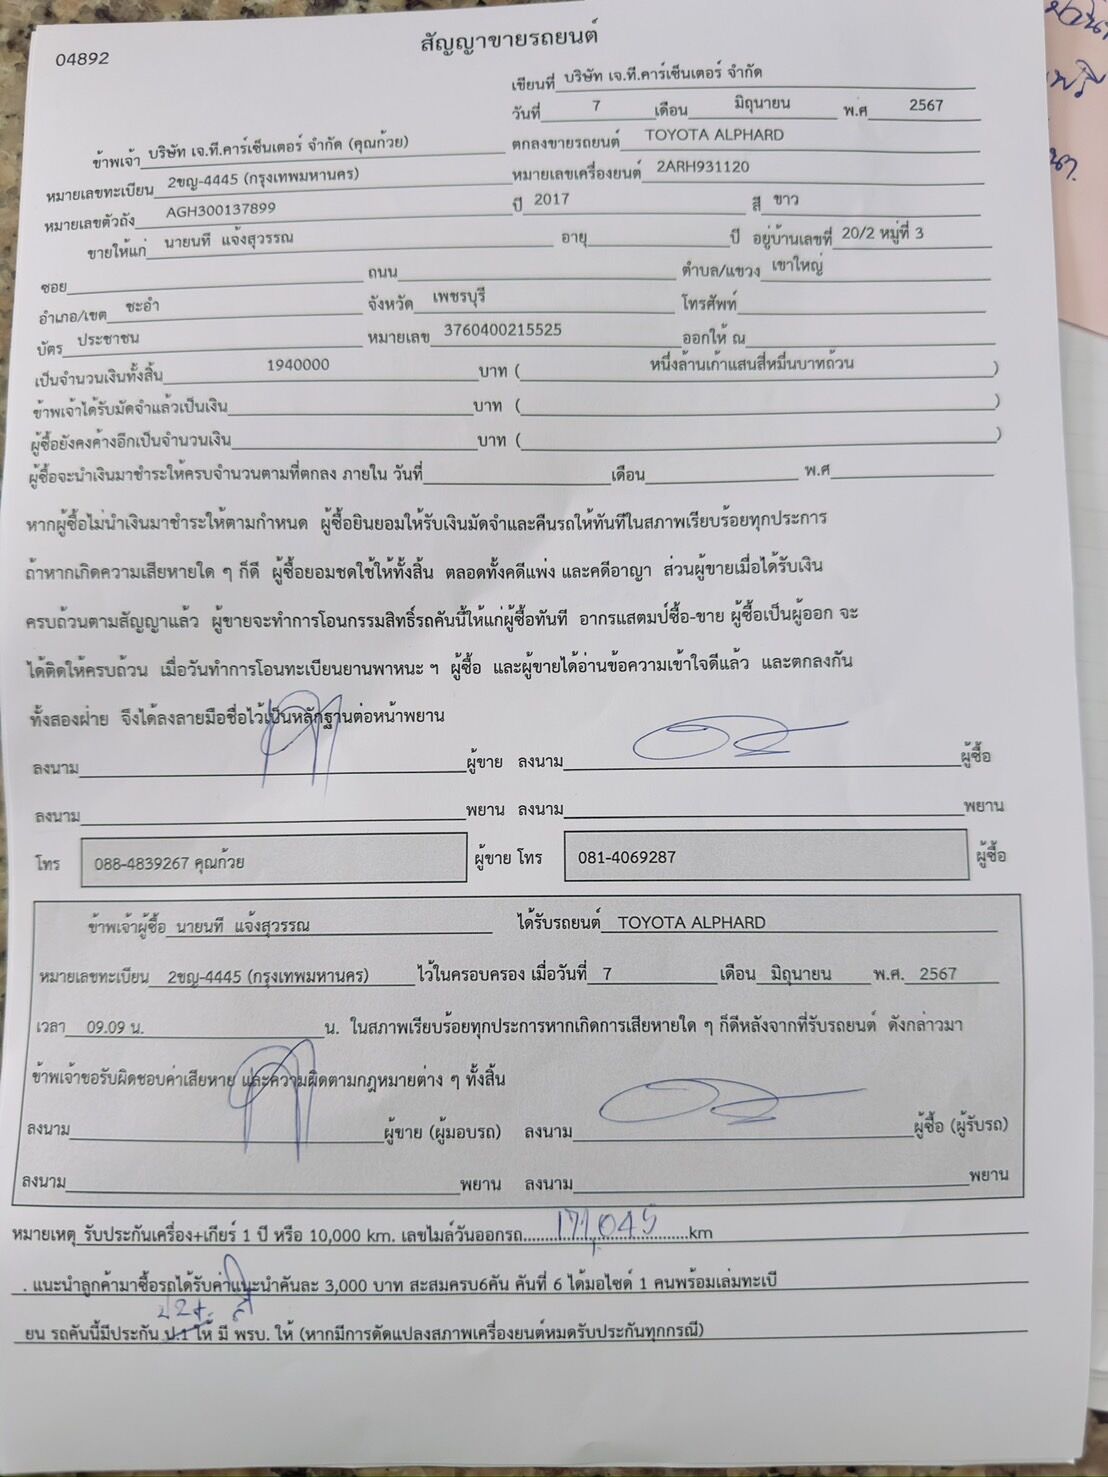 04892
สัญญาขายรถยนต์
เขียนที่ บริษัท เจ.ที.คาร์เซ็นเตอร์ จำกัด
วันที่ 7 เดือน มิถุนายน พ.ศ 2567
ข้าพเจ้า บริษัท เจ.ที.คาร์เซ็นเตอร์ จำกัด (คุณก้วย) ตกลงขายรถยนต์ TOYOTA ALPHARD
หมายเลขทะเบียน 2ขญ-4445 (กรุงเทพมหานคร) หมายเลขเครื่องยนต์ 2ARH931120
หมายเลขตัวถัง AGH300137899 ปี 2017 สี ขาว
ขายให้แก่ นายนที แจ้งสุวรรณ อายุ ปี อยู่บ้านเลขที่ 20/2 หมู่ที่ 3
ซอย ถนน ตำบล/แขวง เขาใหญ่
อำเภอ/เขต ชะอำ จังหวัด เพชรบุรี โทรศัพท์
บัตร ประชาชน หมายเลข 3760400215525 ออกให้ ณ
เป็นจำนวนเงินทั้งสิ้น 1940000 บาท ( หนึ่งล้านเก้าแสนสี่หมื่นบาทถ้วน )
ข้าพเจ้าได้รับมัดจำแล้วเป็นเงิน บาท ( )
ผู้ซื้อยังคงค้างอีกเป็นจำนวนเงิน บาท ( )
ผู้ซื้อจะนำเงินมาชำระให้ครบจำนวนตามที่ตกลง ภายใน วันที่ เดือน พ.ศ
หากผู้ซื้อไม่นำเงินมาชำระให้ตามกำหนด ผู้ซื้อยินยอมให้รับเงินมัดจำและคืนรถให้ทันทีในสภาพเรียบร้อยทุกประการ
ถ้าหากเกิดความเสียหายใด ๆ ก็ดี ผู้ซื้อยอมชดใช้ให้ทั้งสิ้น ตลอดทั้งคดีแพ่ง และคดีอาญา ส่วนผู้ขายเมื่อได้รับเงิน
ครบถ้วนตามสัญญาแล้ว ผู้ขายจะทำการโอนกรรมสิทธิ์รถคันนี้ให้แก่ผู้ซื้อทันที อากรแสตมป์ซื้อ-ขาย ผู้ซื้อเป็นผู้ออก จะ
ได้ติดให้ครบถ้วน เมื่อวันทำการโอนทะเบียนยานพาหนะ ฯ ผู้ซื้อ และผู้ขายได้อ่านข้อความเข้าใจดีแล้ว และตกลงกัน
ทั้งสองฝ่าย จึงได้ลงลายมือชื่อไว้เป็นหลักฐานต่อหน้าพยาน
ลงนาม ผู้ขาย ลงนาม ผู้ซื้อ
ลงนาม พยาน ลงนาม พยาน
โทร 088-4839267 คุณก้วย ผู้ขาย โทร 081-4069287 ผู้ซื้อ
ข้าพเจ้าผู้ซื้อ นายนที แจ้งสุวรรณ ได้รับรถยนต์ TOYOTA ALPHARD
หมายเลขทะเบียน 2ขญ-4445 (กรุงเทพมหานคร) ไว้ในครอบครอง เมื่อวันที่ 7 เดือน มิถุนายน พ.ศ. 2567
เวลา 09.09 น. น. ในสภาพเรียบร้อยทุกประการหากเกิดการเสียหายใด ๆ ก็ดีหลังจากที่รับรถยนต์ ดังกล่าวมา
ข้าพเจ้าขอรับผิดชอบค่าเสียหาย และความผิดตามกฎหมายต่าง ๆ ทั้งสิ้น
ลงนาม ผู้ขาย (ผู้มอบรถ) ลงนาม ผู้ซื้อ (ผู้รับรถ)
ลงนาม พยาน ลงนาม พยาน
หมายเหตุ รับประกันเครื่อง+เกียร์ 1 ปี หรือ 10,000 km. เลขไมล์วันออกรถ 171,045 km
. แนะนำลูกค้ามาซื้อรถได้รับค่าแนะนำคันละ 3,000 บาท สะสมครบ6คัน คันที่ 6 ได้มอไซด์ 1 คนพร้อมเล่มทะเบี
ป 2+
ยน รถคันนี้มีประกัน ป.1 ให้ มี พรบ. ให้ (หากมีการดัดแปลงสภาพเครื่องยนต์หมดรับประกันทุกกรณี)